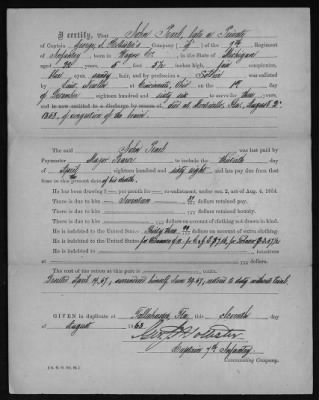 I Certify, That John Pearl, late a Private
of Captain George S. Hollister's Company ( ) of the 7th Regiment
of Infantry born in Wayne Co. in the State of Michigan
aged years, feet inches high, fair complexion,
Blue eyes, sandy hair, and by profession a Soldier was enlisted
by Lieut. at Cincinnati, Ohio on the
December eighteen hundred and sixty six to serve for three years,
and is now entitled to a discharge by reason of died at Monticello, Fla, August 2d
1868, of congestion of the brain.
The said John Pearl was last paid by
Paymaster Major to include the thirtieth day
of April eighteen hundred and sixty eight and has pay due from that
time to the present date of his death.
He has been drawing $ per month for re-enlistment, under sec. 2, act of Aug. 4, 1854.
There is due to him Seventeen dollars retained pay.
There is due to him dollars retained bounty.
There is due to him dollars on account of clothing not drawn in kind.
He is indebted to the United States Thirty three dollars on account of extra clothing.
He is indebted to the United States for
He is indebted to
at yes dollars.
The cost of his rations at this post is cents.
Deserted April 19, 67, surrendered himself June 29, 67, restored to duty without trial.
GIVEN in duplicate at Tallahassee, Fla, this eleventh day
of August 1868.
Geo. S. Hollister
Captain 7th Infantry
Commanding Company.